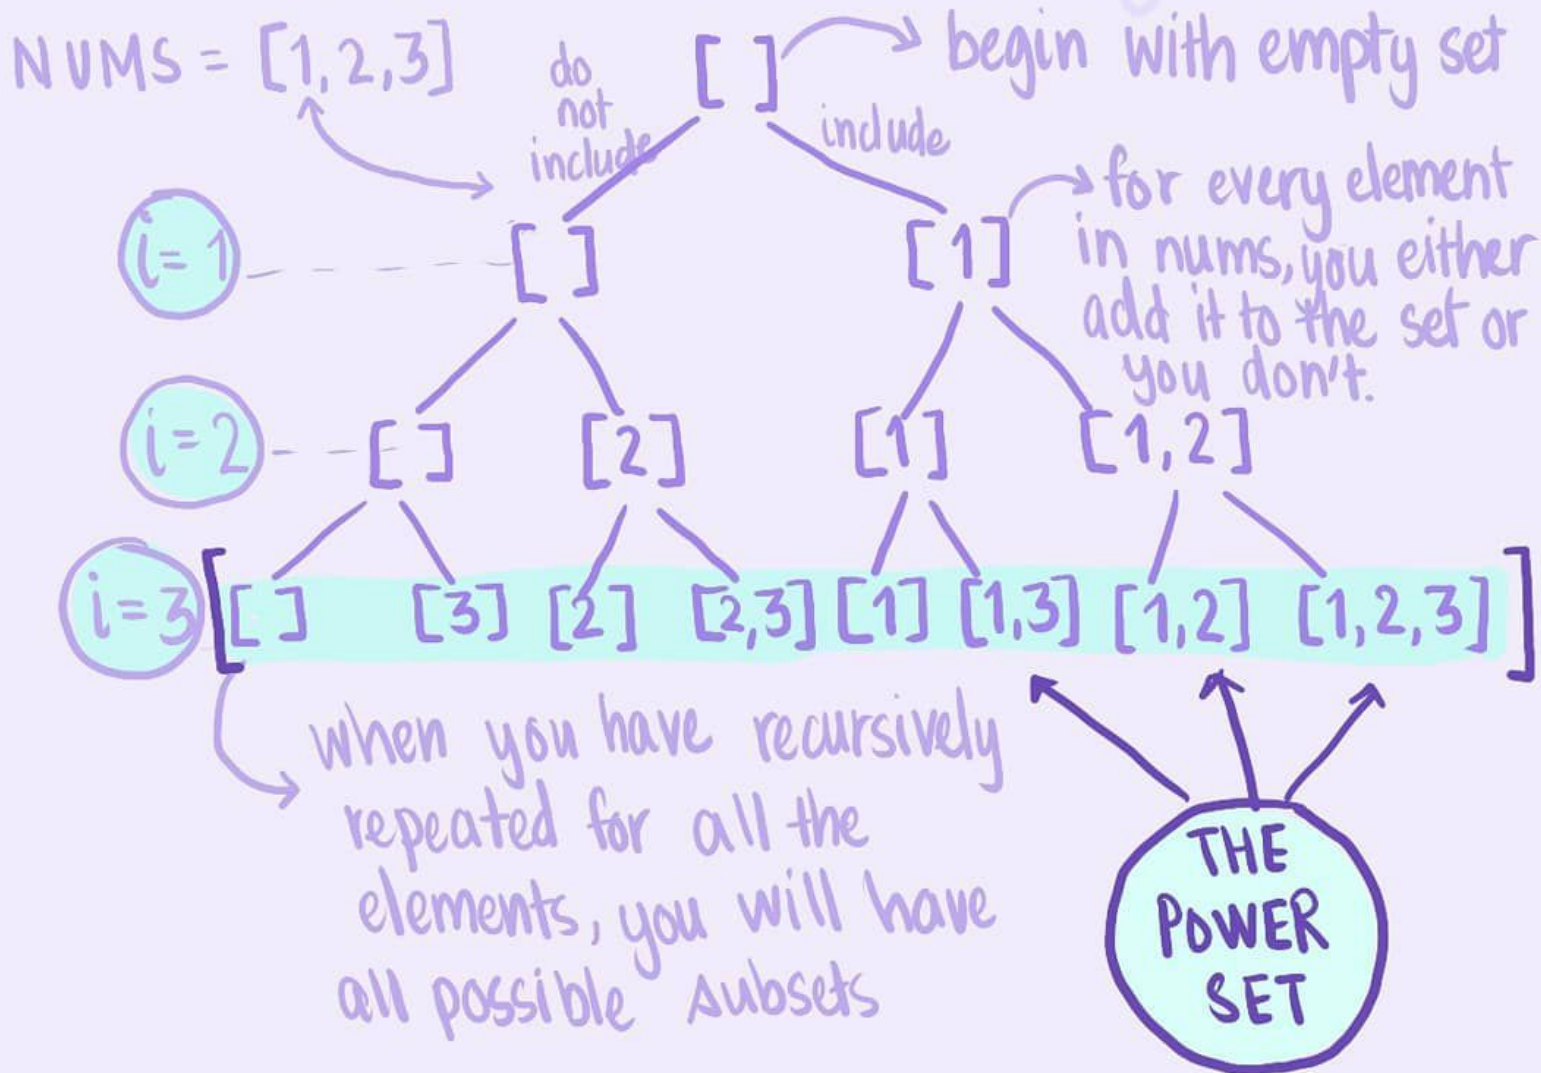 NUMS = [1,2,3]
do
not
include
[ ]
begin with empty set
include
i=1
[ ]
[1]
for every element
in nums, you either
add it to the set or
you don't.
i=2
[ ]
[2]
[1]
[1,2]
i=3
[ [ ] [3] [2] [2,3] [1] [1,3] [1,2] [1,2,3] ]
when you have recursively
repeated for all the
elements, you will have
all possible subsets
THE
POWER
SET